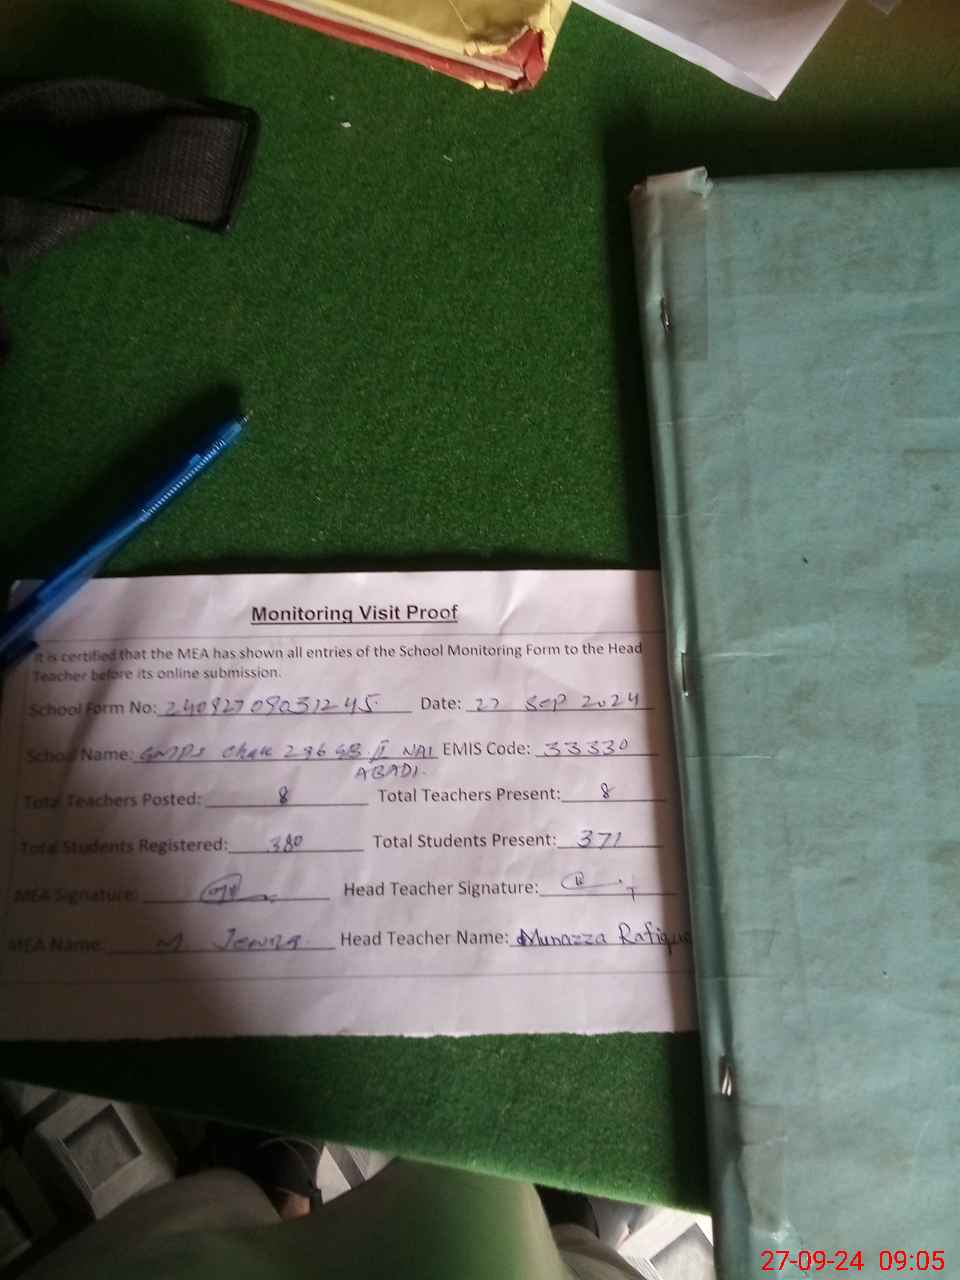 Monitoring Visit Proof
It is certified that the MEA has shown all entries of the School Monitoring Form to the Head
Teacher before its online submission.
School Form No: 24092709031245 Date: 27 Sep 2024
School Name: GMPS Chak 286 GB II NAI EMIS Code: 33330
ABADI.
Total Teachers Posted: 8 Total Teachers Present: 8
Total Students Registered: 380 Total Students Present: 371
MEA Signature: Head Teacher Signature:
MEA Name: M. Head Teacher Name: Munazza Rafique
27-09-24 09:05